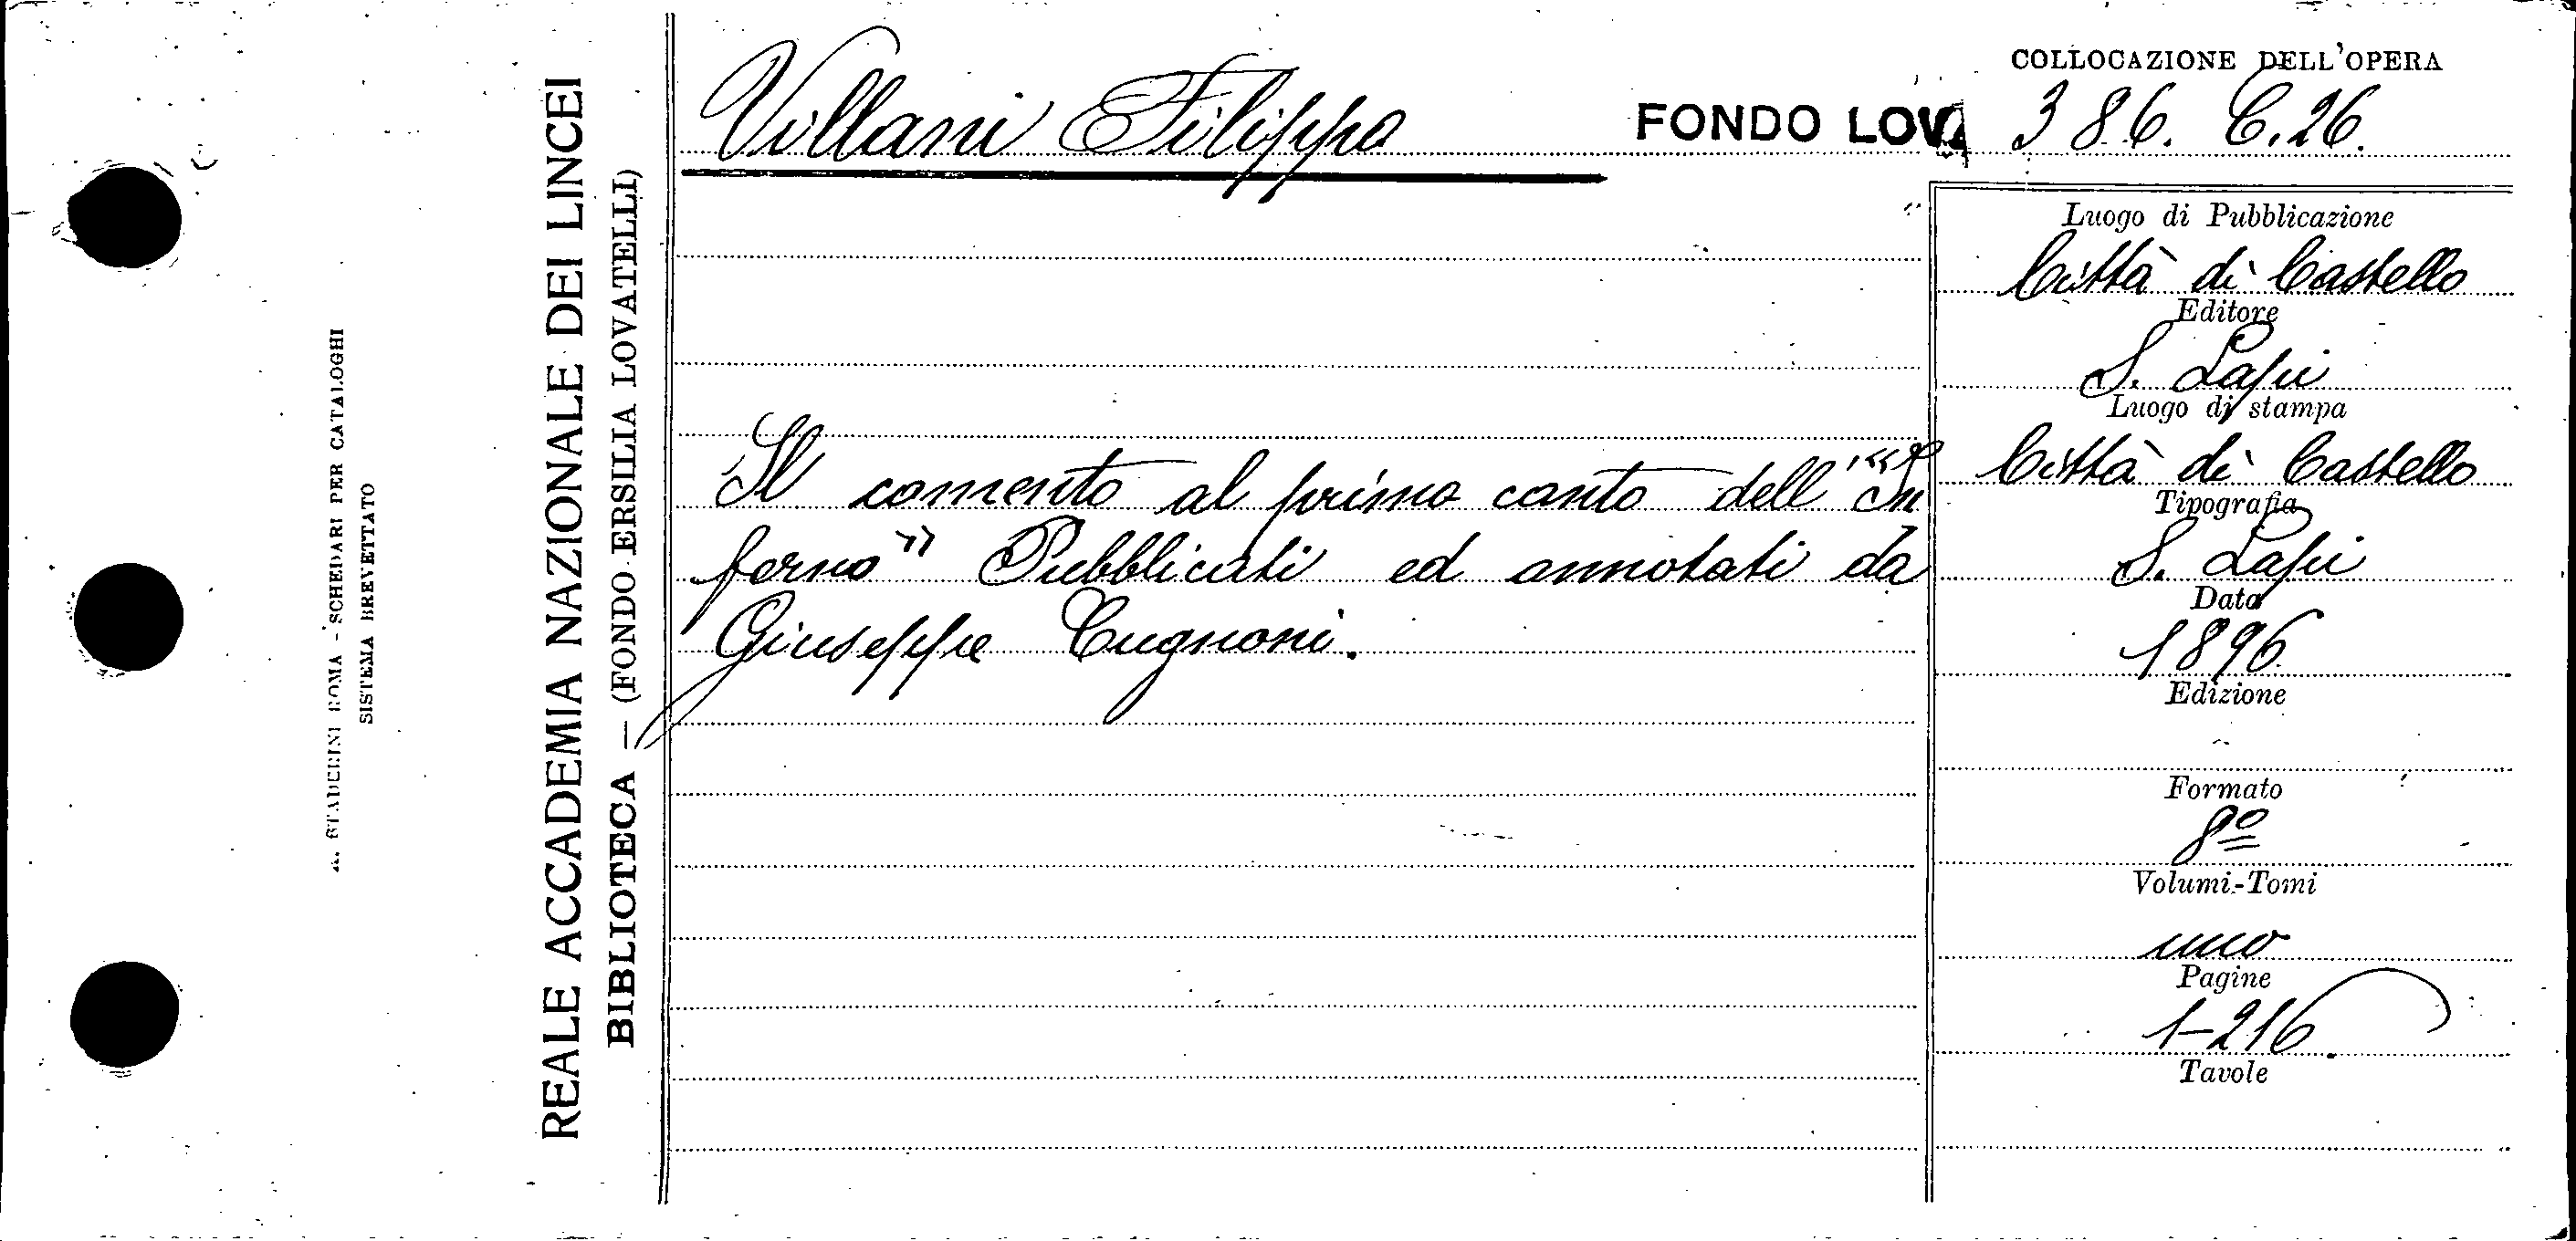 A. STADERINI ROMA - SCHEDARI PER CATALOGHI
SISTEMA BREVETTATO
REALE ACCADEMIA NAZIONALE DEI LINCEI
BIBLIOTECA — (FONDO ERSILIA LOVATELLI)
Villani Filippo
FONDO LOV.
COLLOCAZIONE DELL'OPERA
386. C.26.
Il comento al primo canto dell'“In
ferno” Pubblicati ed annotati da
Giuseppe Cugnoni.
Luogo di Pubblicazione
Città di Castello
Editore
S. Lapi
Luogo di stampa
Città di Castello
Tipografia
S. Lapi
Data
1896
Edizione
Formato
8º
Volumi-Tomi
uno
Pagine
1-216
Tavole